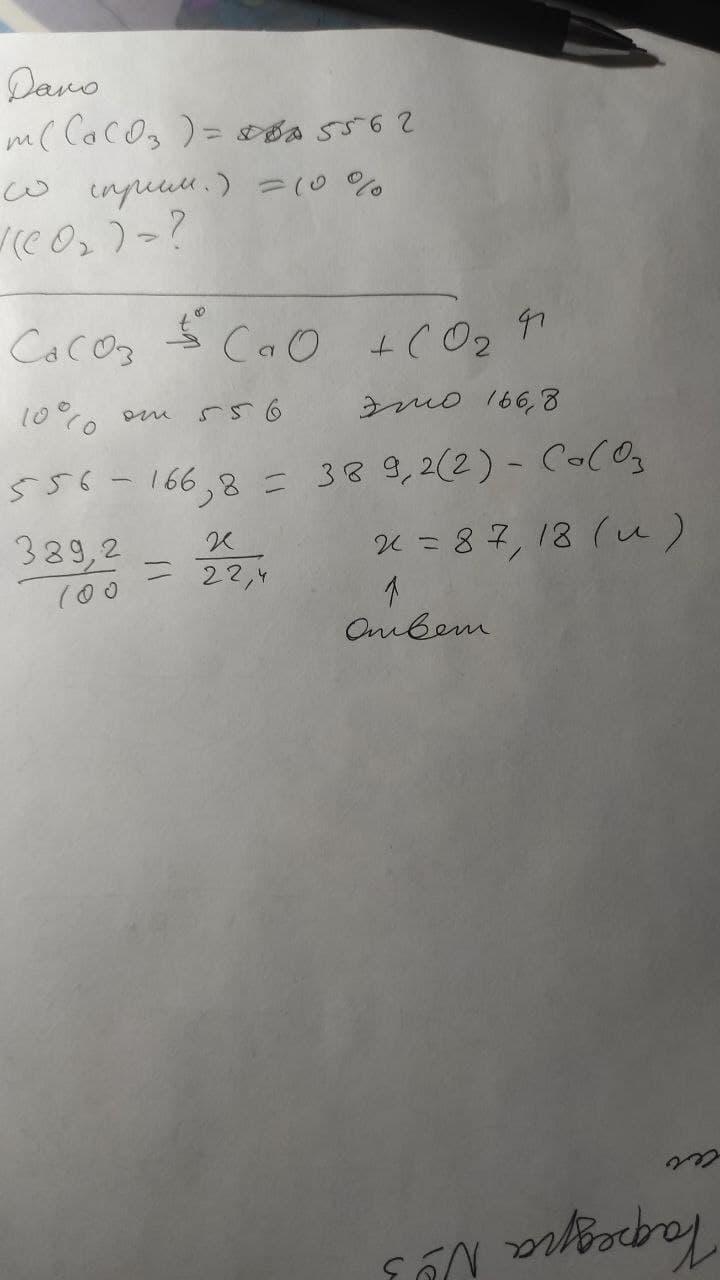 Дано
m(CaCO₃) = 556 г
ω (прим.) = 10 %
V(CO₂) - ?
CaCO₃ →t° CaO + CO₂ ↑
10% от 556 это 166,8
556 - 166,8 = 389,2(г) - CaCO₃
389,2/100 = x/22,4 x = 87,18 (л)
↑
Ответ
Кафедра №3